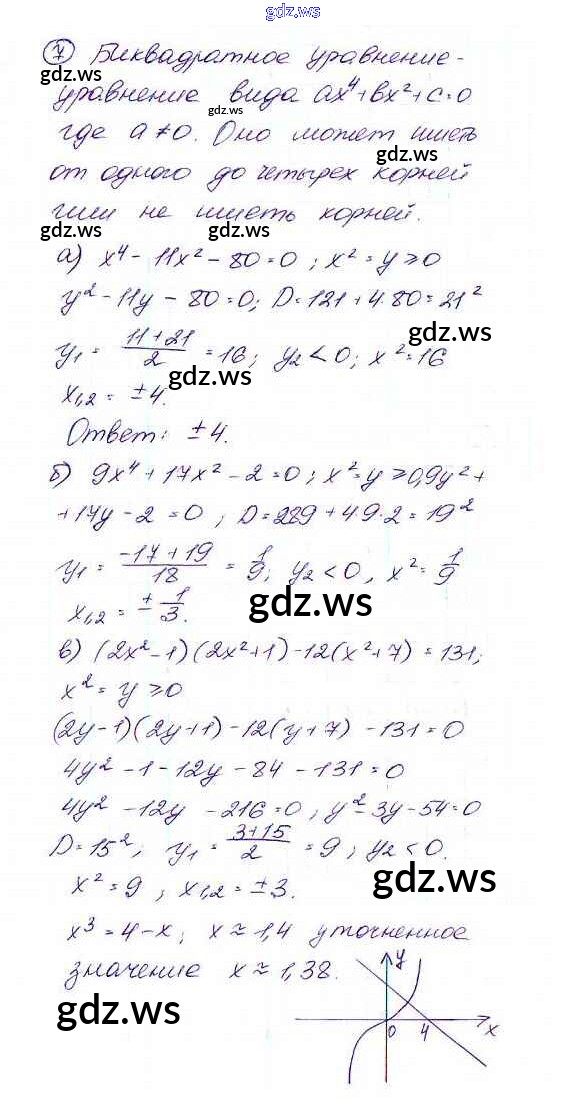 gdz.ws
⑦ Биквадратное уравнение -
gdz.ws
уравнение вида ax⁴+bx²+c=0
gdz.ws
где a≠0. Оно может иметь
gdz.ws
от одного до четырех корней
или не иметь корней.
gdz.ws gdz.ws gdz.ws
а) x⁴ - 11x² - 80 = 0 ; x² = y ≥ 0
y² - 11y - 80 = 0; D = 121 + 4·80 = 21²
gdz.ws
y₁ = (11+21)/2 = 16; y₂ < 0; x² = 16
gdz.ws
x₁,₂ = ±4.
Ответ: ±4.
б) 9x⁴ + 17x² - 2 = 0 ; x² = y ≥ 0, 9y² +
+ 17y - 2 = 0 ; D = 289 + 4·9·2 = 19²
y₁ = (-17+19)/18 = 1/9; y₂ < 0, x² = 1/9
x₁,₂ = ± 1/3.
gdz.ws gdz.ws
в) (2x²-1)(2x²+1) - 12(x²+7) = 131;
x² = y ≥ 0
(2y-1)(2y+1) - 12(y+7) - 131 = 0
4y² - 1 - 12y - 84 - 131 = 0
4y² - 12y - 216 = 0 ; y² - 3y - 54 = 0
D = 15²; y₁ = (3+15)/2 = 9 ; y₂ < 0.
gdz.ws
x² = 9 ; x₁,₂ = ±3.
x³ = 4 - x; x ≈ 1,4 уточненное
значение x ≈ 1,38.
y
gdz.ws
0 4 x
gdz.ws